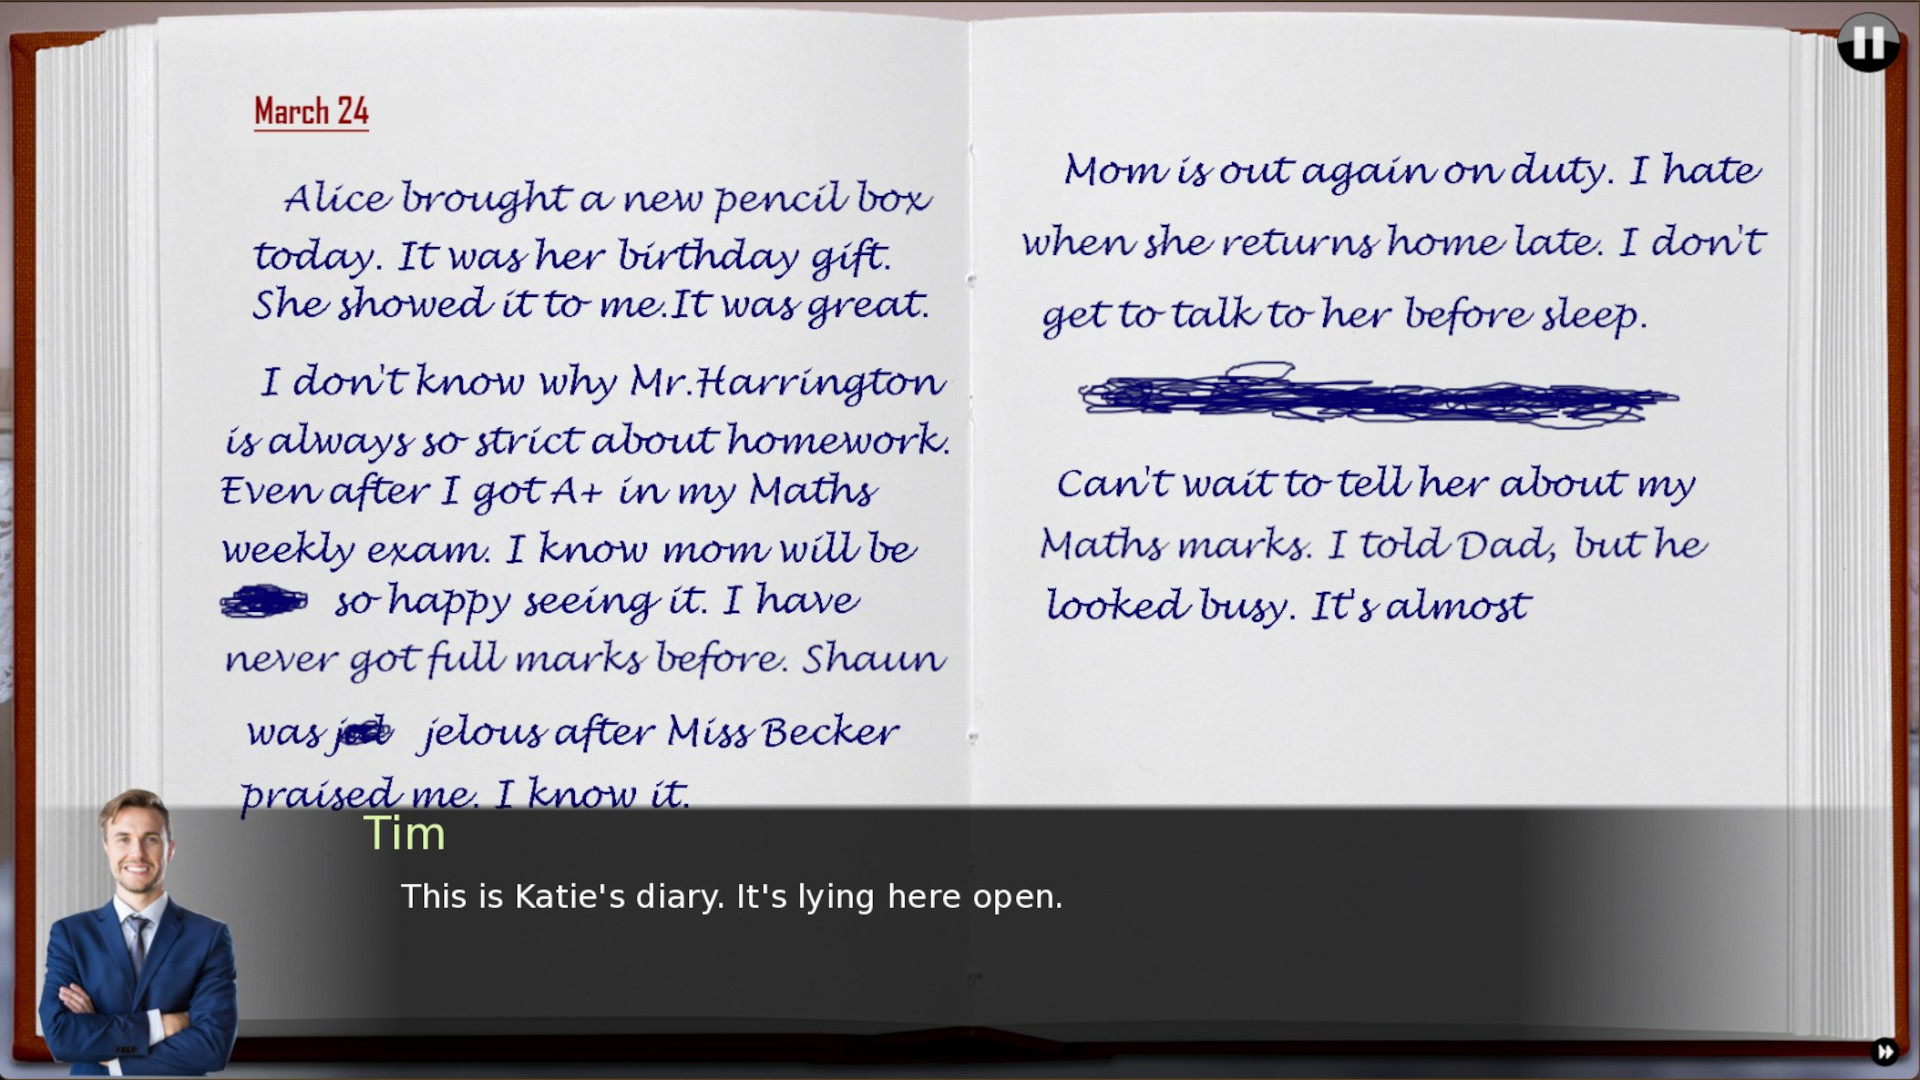 March 24
Alice brought a new pencil box
today. It was her birthday gift.
She showed it to me.It was great.
I don't know why Mr.Harrington
is always so strict about homework.
Even after I got A+ in my Maths
weekly exam. I know mom will be
so happy seeing it. I have
never got full marks before. Shaun
was jelous after Miss Becker
praised me. I know it.
Mom is out again on duty. I hate
when she returns home late. I don't
get to talk to her before sleep.
Can't wait to tell her about my
Maths marks. I told Dad, but he
looked busy. It's almost
Tim
This is Katie's diary. It's lying here open.